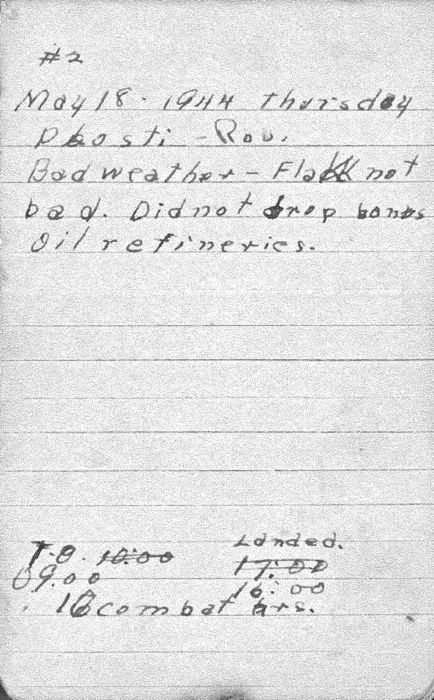 #2
May 18 - 1944 Thursday
Ploosti - Rou.
Bad weather - Flak not
bad. Did not drop bombs
Oil refineries.
T.O. 10:00 Landed.
09.00 17:00
16:00
combat hrs.